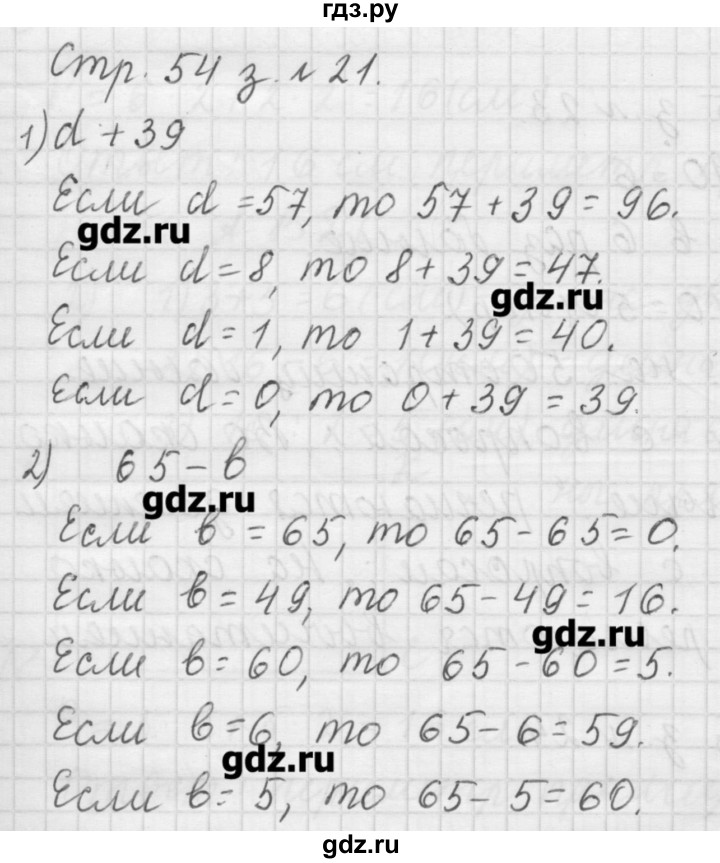 гдз.ру
Стр. 54 з. № 21.
1) d + 39
Если d = 57, то 57 + 39 = 96.
gdz.ru
Если d = 8, то 8 + 39 = 47.
gdz.ru
Если d = 1, то 1 + 39 = 40.
Если d = 0, то 0 + 39 = 39.
2) 65 - в
gdz.ru
Если в = 65, то 65 - 65 = 0.
Если в = 49, то 65 - 49 = 16.
gdz.ru
Если в = 60, то 65 - 60 = 5.
Если в = 6, то 65 - 6 = 59.
gdz.ru
Если в = 5, то 65 - 5 = 60.
gdz.ru